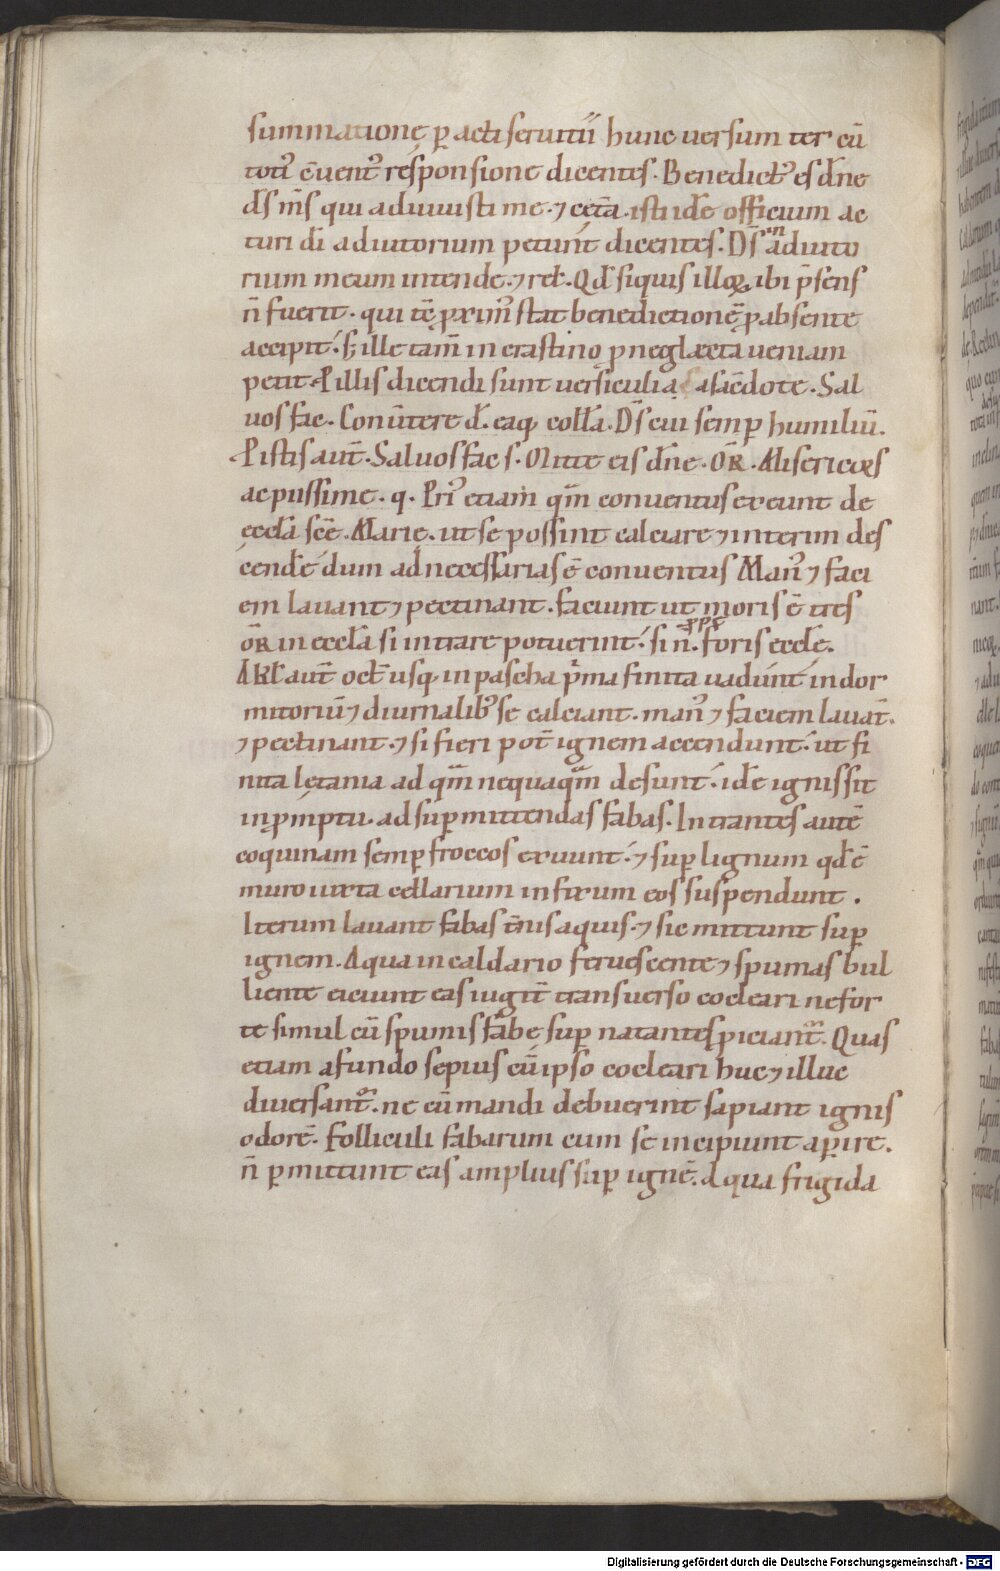 summatione p̱acti seruitiī hunc versum ter cū
toti᷒ c̄uent᷒ responsione dicentes. Benedict᷒ es dn̄e
ds̄ ms̄ qui adiuuisti me. ⁊ cet̄a. isti id̄e officium ac
turi dī adiutorium petunt dicentes. Ds̄ in adiuto
rium meum intende. ⁊ rel̄. Qd̄ siquis illoꝝ ibi p̄sens
n̄ fuerit. qui tē ꝓxim᷒ stat benedictionē ꝓ absente
accipit. S; ille tam̄ in crastino ꝓ neglæcta ueniam
petit. P illis dicendi sunt uersiculi a sacēdote. Sal
uos fac. Conu̅tere d̄. eaq; coll̄a. Ds̄ cui semꝑ humiliū.
P istis aut̄. Saluos fac s. Mitte eis dn̄e. OR̄. Misericors
ac piissime. q. Pri᷒ etiam qm̄ conuentus exeunt de
ęccl̄a scē MARIE. ut se possint calciare ⁊ interim des
cendēdum ad necessarias ē conuentus Man᷒ ⁊ faci
em lauant ⁊ pectinant. faciunt ut moris ē tres
OR̄ in eccl̄a si intrare potuerint. si n̄. foris eccl̄e.
A KL̄ aut̄ oct̄ usq; in pascha p̄ma finita uadunt in dor
mitoriū ⁊ diurnalib᷒ se calciant. man᷒ ⁊ faciem lauāt.
⁊ pectinant. ⁊ si fieri pot̄ ignem accendunt. ut fi
nita lętania ad qm̄ nequaqm̄ desunt. id̄e ignis sit
in ꝓmptu. ad supmittendas fabas. Intrantes autē
coquinam semꝑ froccos exuunt. ⁊ suꝑ lignum qd̄ ē
muro iuxta cellarium infixum eos suspendunt.
Iterum lauant fabas t̄nis aquis. ⁊ sic mittunt suꝑ
ignem. Aqua in caldario feruescente ⁊ spumas bul
liente eiciunt eas iugit̄ transuerso cocleari ne for
te simul cū spumis fabę suꝑnatantes piciant᷑. Quas
etiam a fundo sepius cū ipso cocleari huc ⁊ illuc
diuersant᷑. ne cū mandi debuerint sapiant ignis
odorē. Folliculi fabarum cum se incipiunt aꝑire.
n̄ ꝑmittunt eas amplius suꝑ ignē. Aqua frigida
Digitalisierung gefördert durch die Deutsche Forschungsgemeinschaft - DFG